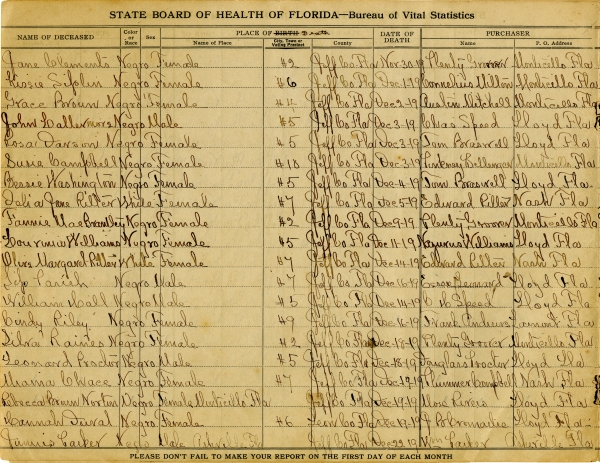 STATE BOARD OF HEALTH OF FLORIDA—Bureau of Vital Statistics
NAME OF DECEASED Color or Race Sex PLACE OF BIRTH Death DATE OF DEATH PURCHASER
Name of Place City, Town or Voting Precinct County Name P. O. Address
Jane Clements Negro Female #2 Jeff Co Fla Nov-30-19 Plenty Groover Monticello Fla
Female #6 Jeff Co Fla Dec-1-19 Cornelius Monticello Fla
Grace Negro Female #4 Jeff Co Fla Dec-2-19 Austin Mitchell Monticello Fla
John Negro Male #5 Jeff Co Fla Dec-3-19 Chas Speed Lloyd Fla
Rosa Dawson Negro Female #5 Jeff Co Fla Dec-3-19 Braswell Lloyd Fla
Susie Campbell Negro Female #10 Jeff Co Fla Dec-3-19 Pinkney Bellinger Monticello Fla
Bessie Washington Negro Female #5 Jeff Co Fla Dec-4-19 Tom Braswell Lloyd Fla
Delia Jane Ritter White Female #7 Jeff Co Fla Dec-5-19 Edward Ritter Nash Fla
Fannie Mae Brantley Negro Female #2 Jeff Co Fla Dec-9-19 Plenty Groover Monticello Fla
Lourinia Williams Negro Female #5 Jeff Co Fla Dec-11-19 Williams Lloyd Fla
Olive Margaret Ritter White Female #7 Jeff Co Fla Dec-14-19 Edward Ritter Nash Fla
Parish Negro Male #7 Jeff Co Fla Dec-16-19 Lloyd Fla
William Hall Negro Male #5 Jeff Co Fla Dec-14-19 Speed Lloyd Fla
Cindy Riley Negro Female #9 Jeff Co Fla Dec-16-19 Frank Andrews Lamont Fla
Silva Raines Negro Female #2 Jeff Co Fla Dec-18-19 Plenty Groover Monticello Fla
Leonard Proctor Negro Male #5 Jeff Co Fla Dec-18-19 Douglass Proctor Lloyd Fla
Mama Chace Negro Female #7 Jeff Co Fla Dec-19-19 Plummer Campbell Nash Fla
Negro Female Monticello Fla Jeff Co Fla Dec-19-19 Lloyd Fla
Hannah Duval Negro Female #6 Jeff Co Fla Dec-19-19 Lloyd Fla
Parker Negro Male Fla Jeff Co Fla Dec 22-19 Wm Parker Fla
PLEASE DON'T FAIL TO MAKE YOUR REPORT ON THE FIRST DAY OF EACH MONTH